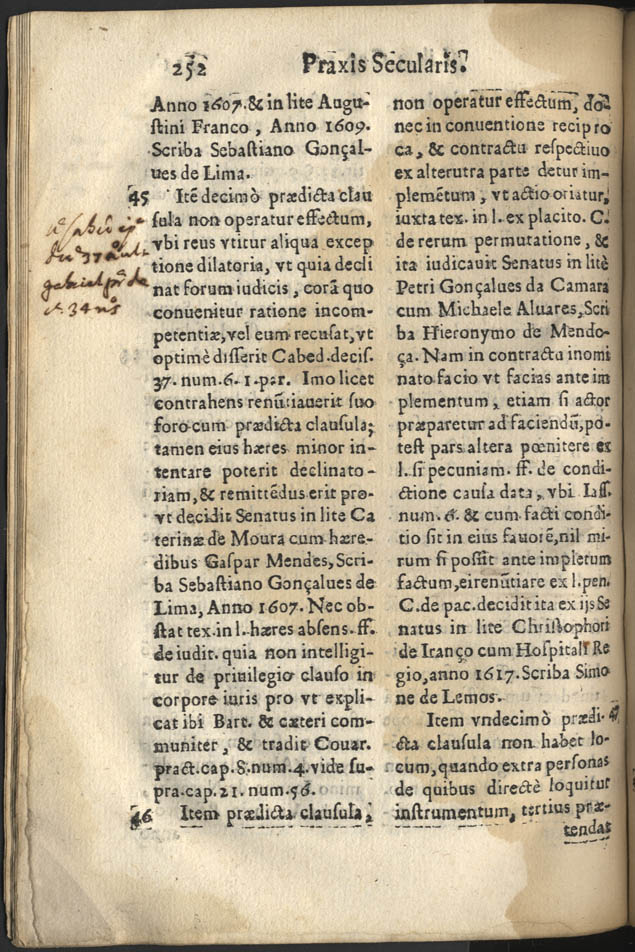 252
Praxis Secularis.
Anno 1607. & in lite Augu-
stini Franco, Anno 1609.
Scriba Sebastiano Gonçal-
ues de Lima.
45
Itẽ decimò prædicta clau
sula non operatur effectum,
vbi reus vtitur aliqua excep
tione dilatoria, vt quia decli
nat forum iudicis, corã quo
conuenitur ratione incom-
petentiæ, vel eum recusat, vt
optimè disserit Cabed. decis.
37. num. 6. 1. par. Imo licet
contrahens renũtiauerit suo
foro cum prædicta clausula;
tamen eius hæres minor in-
tentare poterit declinato-
riam, & remittẽdus erit pro-
vt decidit Senatus in lite Ca
terinæ de Moura cum hære-
dibus Gaspar Mendes, Scri-
ba Sebastiano Gonçalues de
Lima, Anno 1607. Nec ob-
stat tex. in l. hæres absens. ff.
de iudit. quia non intelligi-
tur de priuilegio clauso in
corpore iuris pro vt expli-
cat ibi Bart. & cæteri com-
muniter, & tradit Couar.
pract. cap. 8. num. 4. vide su-
pra. cap. 21. num. 56.
46
Item prædicta clausula,
non operatur effectum, do-
nec in conuentione recipro
ca, & contractu respectiuo
ex alterutra parte detur im-
plemẽtum, vt actio oriatur,
iuxta tex. in l. ex placito. C.
de rerum permutatione, &
ita iudicauit Senatus in litè
Petri Gonçalues da Camara
cum Michaele Aluares, Scri
ba Hieronymo de Mendo-
ça. Nam in contractu inomi
nato facio vt facias ante im
plementum, etiam si actor
præparetur ad faciendũ, po-
test pars altera pœnitere ex
l. si pecuniam. ff. de condi-
ctione causa data, vbi Iass.
num. 6. & cum facti condi-
tio sit in eius fauorẽ, nil mi-
rum si possit ante impletum
factum, ei renũtiare ex l. pen.
C. de pac. decidit ita ex ijs Se
natus in lite Christophori
de Iranço cum Hospitali Re
gio, anno 1617. Scriba Simo
ne de Lemos.
Item vndecimò prædi-
47
cta clausula non habet lo-
cum, quando extra personas
de quibus directè loquitur
instrumentum, tertius præ-
tendat